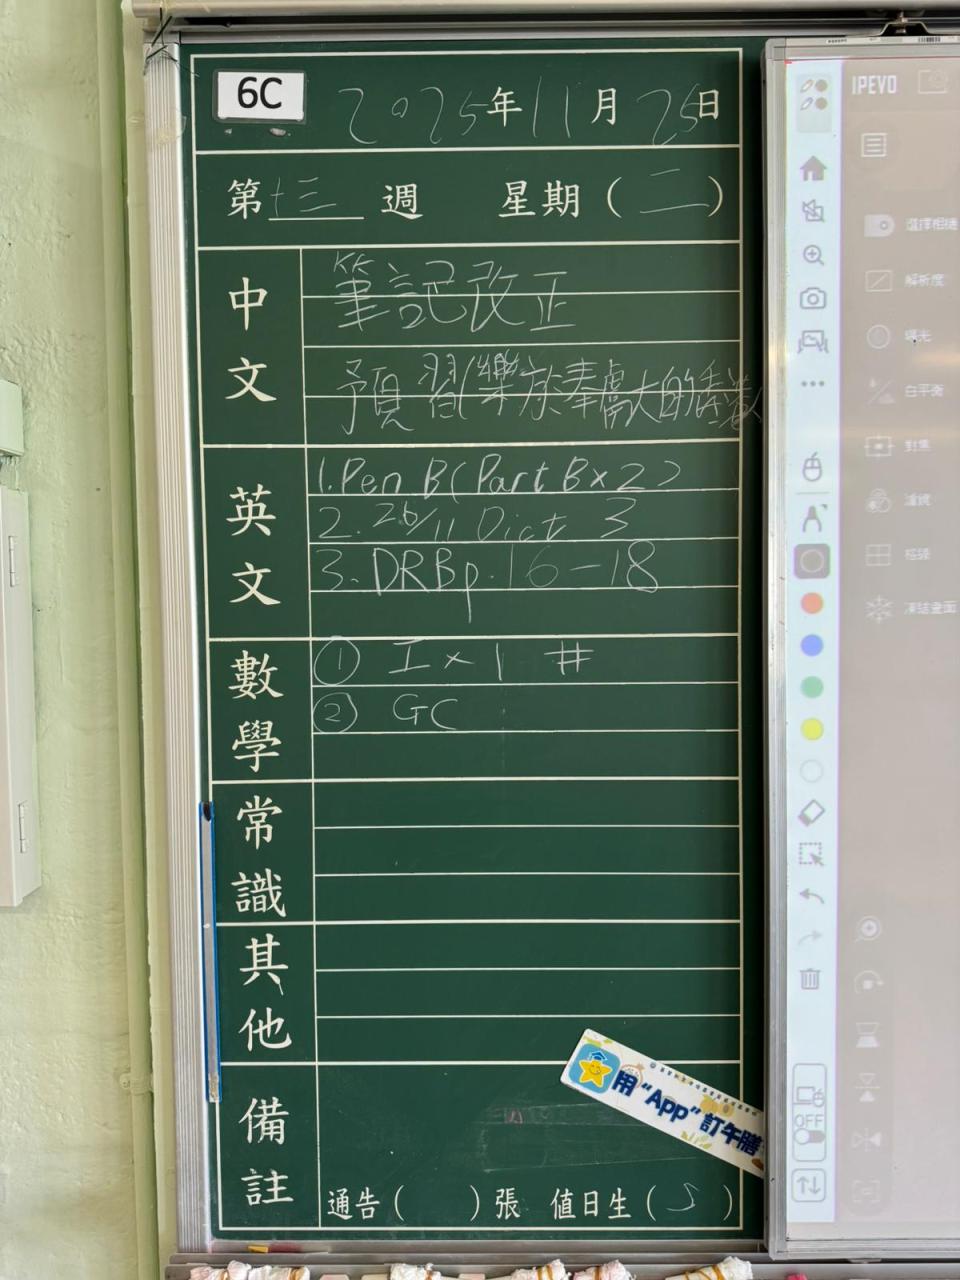 6C
2025年11月25日
第十三週 星期(二)
中文
筆記改正
預習(樂於奉獻大的
英文
1. Pen B (Part B x 2)
2. 26/11 Dict 3
3. DRB p. 16-18
數學
① I x 1 #
② GC
常識
其他
備註
用“App”訂午膳
通告( )張 值日生(5)
IPEVO
選擇相機
解析度
曝光
白平衡
對焦
濾鏡
格線
凍結畫面
OFF